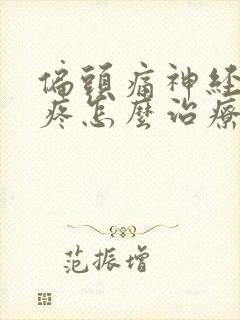 偏頭痛神経
疼怎麼治療
范振增